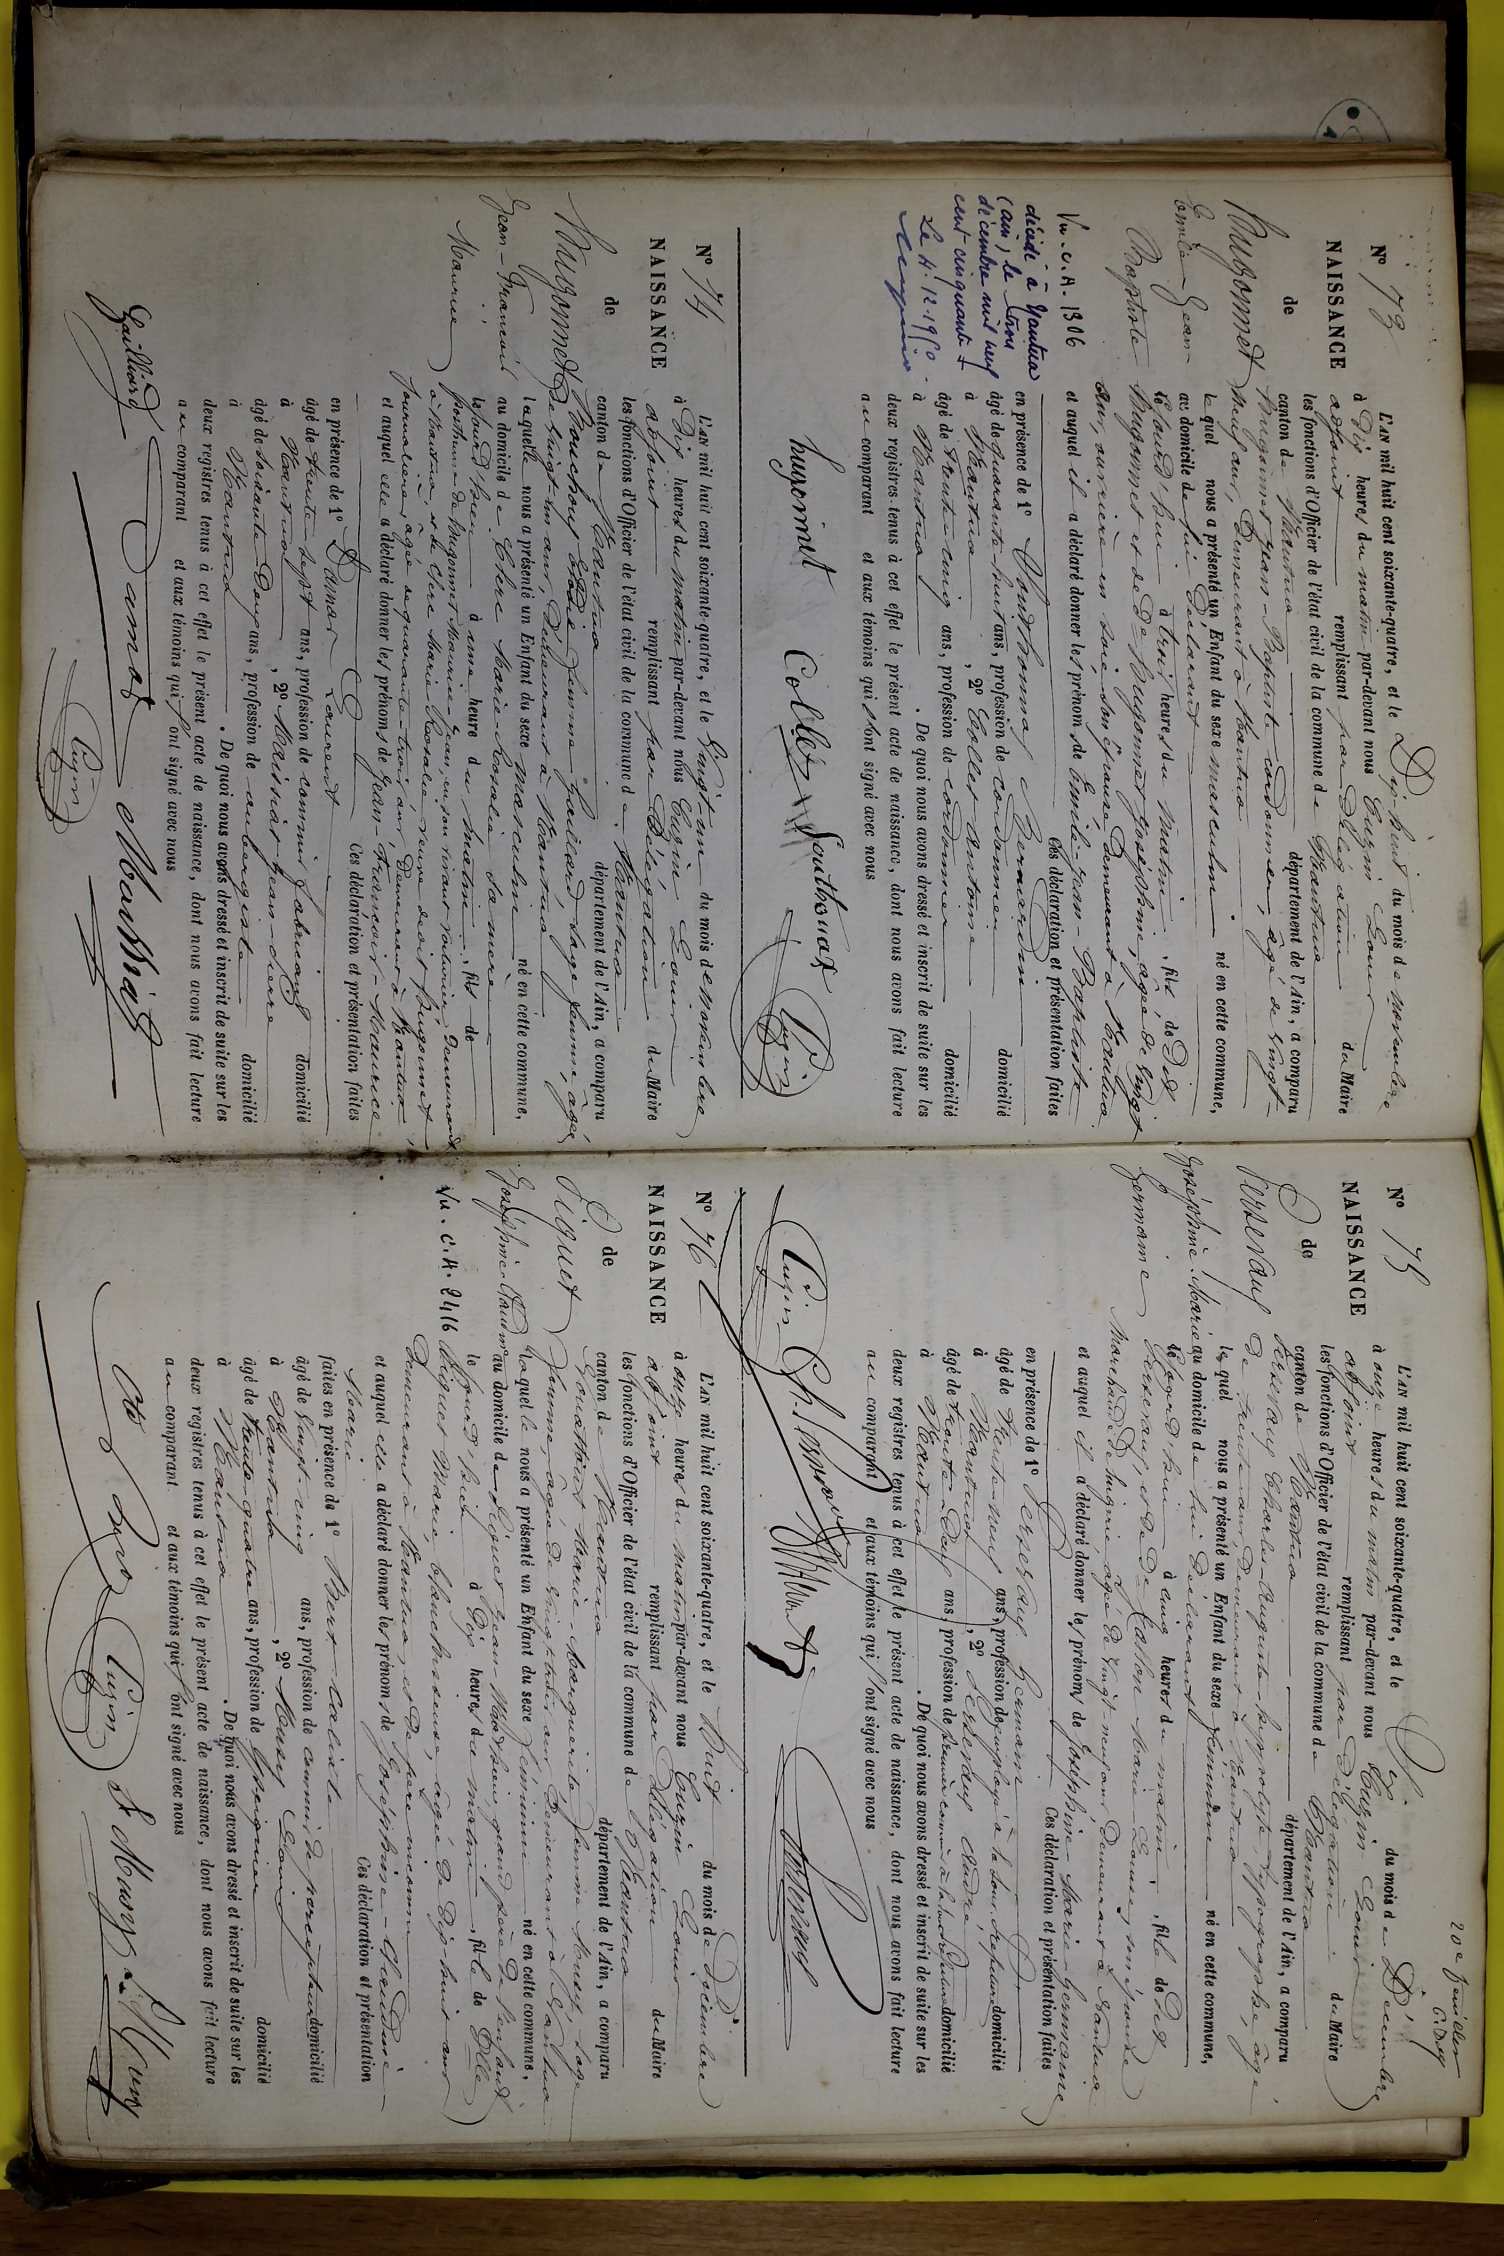 N° 73
NAISSANCE
de
Hugonnet
Emile-Jean-
Baptiste
Vu. C.A. 1306
décédé à Nantua
(Ain) le trois
décembre mil neuf
cent cinquante
Le 4.12.1950
L'AN mil huit cent soixante-quatre, et le Dix-huit du mois de Novembre
à Dix heures du matin par-devant nous Cuzin Louis
adjoint remplissant par Délégation du Maire
les fonctions d'Officier de l'état civil de la commune de Nantua
canton de Nantua département de l'Ain, a comparu
Hugonnet Jean-Baptiste cordonnier, âgé de Vingt-
neuf ans, Demeurant à Nantua
lequel nous a présenté un Enfant du sexe masculin né en cette commune,
au domicile de lui Déclarant
le jourd'hui à trois heures du matin, fils de Dit
Hugonnet et de De Hugonnet Joséphine, âgée de Vingt
ans, ouvrière en soie, son épouse, Demeurant à Nantua
et auquel il a déclaré donner les prénoms de Emile-Jean-Baptiste
Ces déclaration et présentation faites
en présence de 1° Bernardin
âgé de quarante huit ans, profession de cordonnier domicilié
à Nantua, 2° Collet Antoine
âgé de trente cinq ans, profession de cordonnier domicilié
à Nantua. De quoi nous avons dressé et inscrit de suite sur les
deux registres tenus à cet effet le présent acte de naissance, dont nous avons fait lecture
au comparant et aux témoins qui font signé avec nous
hugonnet Collet Cuzin
N° 74
NAISSANCE
de
Hugonnet
Jean-François
Maurice
L'AN mil huit cent soixante-quatre, et le Vingt-un du mois de Novembre
à Dix heures du matin par-devant nous Cuzin Louis
adjoint remplissant par Délégation du Maire
les fonctions d'Officier de l'état civil de la commune de Nantua
canton de Nantua département de l'Ain, a comparu
femme Gaillard, sage femme, âgée
de Vingt-un ans, Demeurant à Nantua
laquelle nous a présenté un Enfant du sexe masculin né en cette commune,
au domicile de Chère Marie-Rosalie sa mère
le jourd'hui à une heure du matin, fils de
posthume de Hugonnet Maurice Jean, en son vivant voiturier, Demeurant
à Nantua, et de Chère Marie Rosalie veuve dudit Hugonnet
journalière, âgée de quarante-trois ans, Demeurant à Nantua,
et auquel elle a déclaré donner les prénoms de Jean-François-Maurice
Ces déclaration et présentation faites
en présence de 1° Damas Laurent
âgé de trente sept ans, profession de commis fabricant domicilié
à Nantua, 2° Massiat Jean-Pierre
âgé de soixante Douze ans, profession de aubergiste domicilié
à Nantua. De quoi nous avons dressé et inscrit de suite sur les
deux registres tenus à cet effet le présent acte de naissance, dont nous avons fait lecture
au comparant et aux témoins qui font signé avec nous
Gailliard Damas Massiat
Cuzin
20e feuillet
N° 75
NAISSANCE
de
Perseraul
Joséphine-Marie
Germaine
L'AN mil huit cent soixante-quatre, et le Six du mois de Décembre
à onze heures du matin par-devant nous Cuzin Louis
adjoint remplissant par Délégation du Maire
les fonctions d'Officier de l'état civil de la commune de Nantua
canton de Nantua département de l'Ain, a comparu
Charles-Auguste-Hippolyte, typographe, âgé
de trente ans, Demeurant à Nantua
lequel nous a présenté un Enfant du sexe féminin né en cette commune,
au domicile de lui Déclarant
le jourd'hui à cinq heures du matin, fille de Dit
et de Marie Louise, son épouse
Marchande de lingerie, âgée de vingt-neuf ans Demeurant à Nantua
et auquel il a déclaré donner les prénoms de Joséphine-Marie-Germaine
Ces déclaration et présentation faites
en présence de 1° Germain
âgé de trente-neuf ans, profession de employé à la domicilié
à Nantua, 2° André
âgé de trente-Deux ans profession de domicilié
à Nantua. De quoi nous avons dressé et inscrit de suite sur les
deux registres tenus à cet effet le présent acte de naissance, dont nous avons fait lecture
au comparant et aux témoins qui font signé avec nous
Cuzin
N° 76
NAISSANCE
de
Piquet
Joséphine-Claudine
Vu. C.A. 2416
L'AN mil huit cent soixante-quatre, et le Huit du mois de Décembre
à onze heures du matin par-devant nous Cuzin Louis
adjoint remplissant par Délégation du Maire
les fonctions d'Officier de l'état civil de la commune de Nantua
canton de Nantua département de l'Ain, a comparu
Marie-Marguerite femme Musy, sage
femme, âgée de ans Demeurant à Nantua
laquelle nous a présenté un Enfant du sexe féminin né en cette commune,
au domicile de Piquet Jean grand père de l'enfant
le jourd'hui à Dix heures du matin, fille de Elle
Piquet Marie, blanchisseuse, âgée de Dix-huit ans
Demeurant à Nantua, et de père inconnu
et auquel elle a déclaré donner les prénoms de Joséphine-Claudine-
Marie Ces déclaration et présentation
faites en présence de 1° Bert Calixte
âgé de vingt-cinq ans, profession de commis de perception domicilié
à Nantua, 2° Musy Louis
âgé de trente-quatre ans, profession de domicilié
à Nantua. De quoi nous avons dressé et inscrit de suite sur les
deux registres tenus à cet effet le présent acte de naissance, dont nous avons fait lecture
au comparant et aux témoins qui font signé avec nous
Cuzin Musy L. Musy